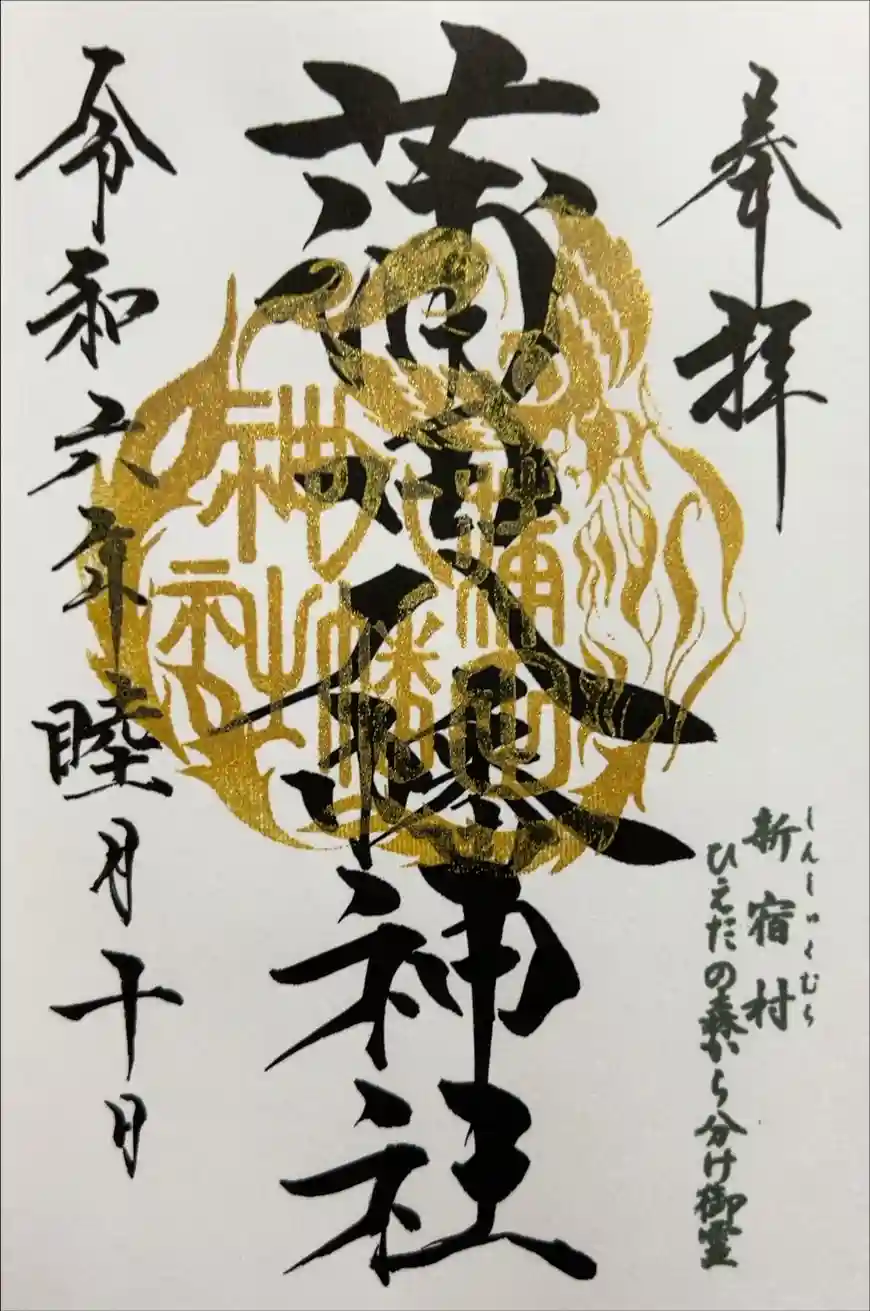 奉拝
しんしゅくむら
新宿村
ひえたの森から分け御霊
蒲田八幡神社
蒲田
八幡
神社
令和六年睦月十日